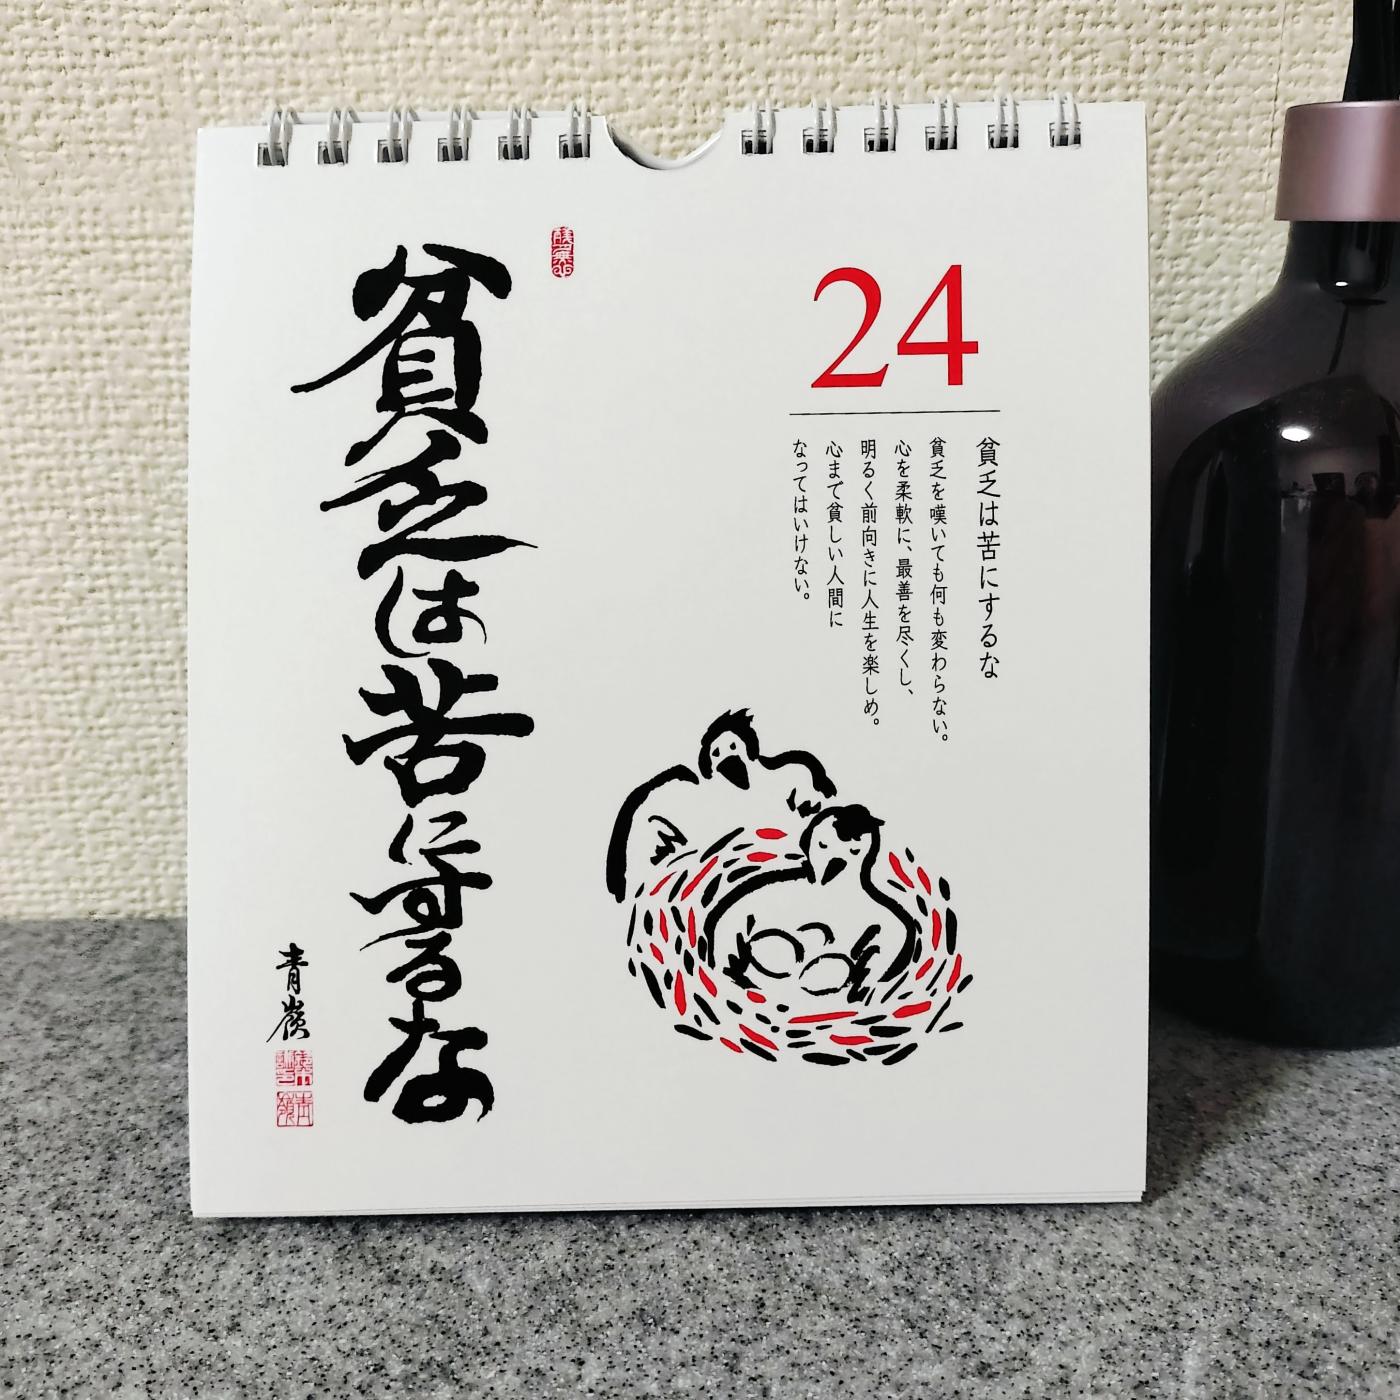 24
貧乏は苦にするな
貧乏を嘆いても何も変わらない。
心を柔軟に、最善を尽くし、
明るく前向きに人生を楽しめ。
心まで貧しい人間に
なってはいけない。
貧乏は苦にするな
青嶺